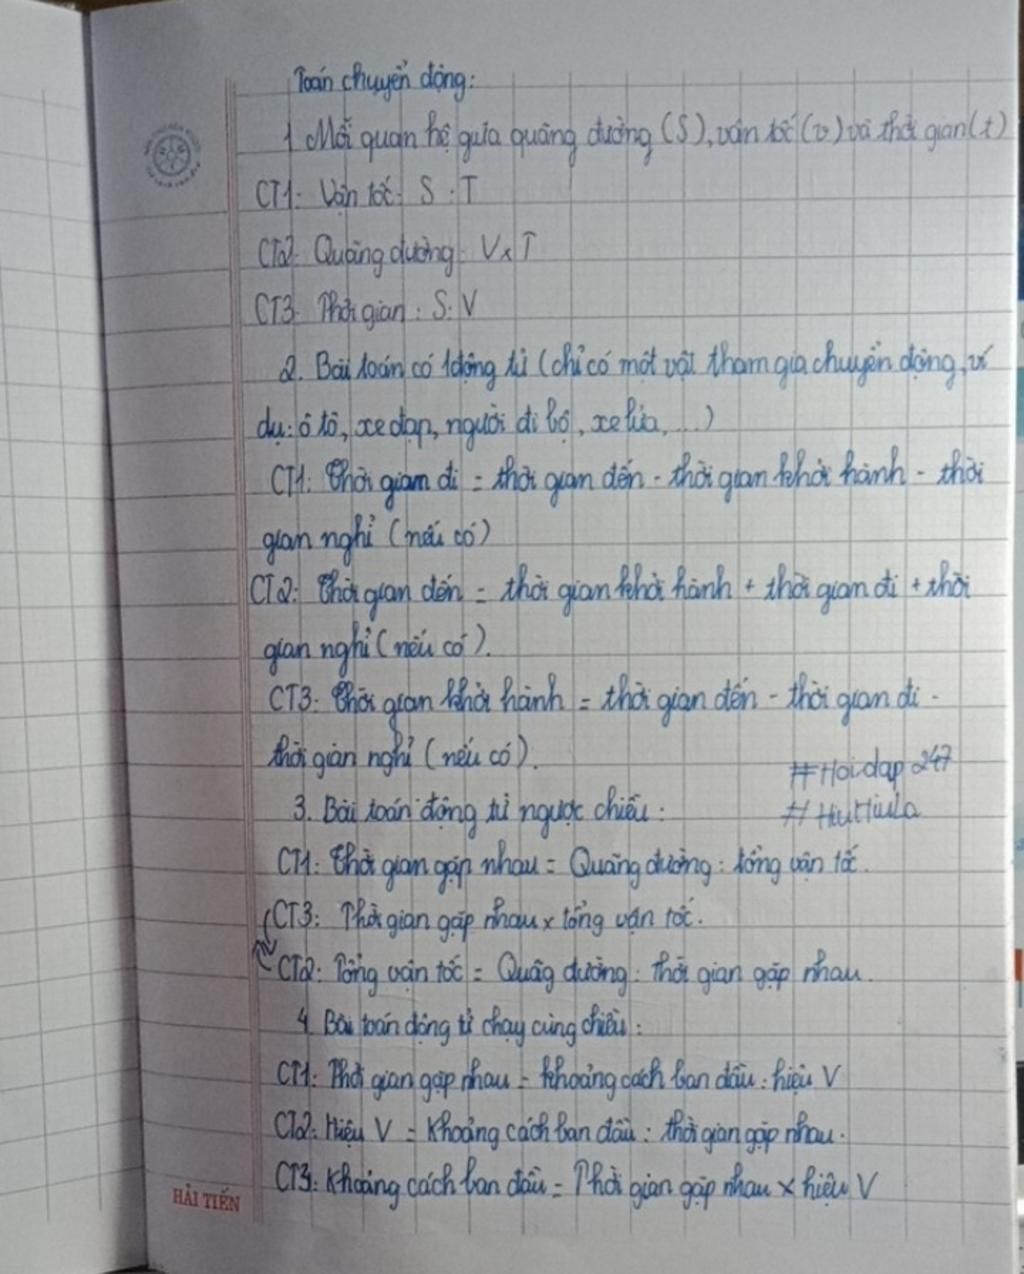 Toán chuyển động:
1 Mối quan hệ giưa quãng đường (S), vân tốc (v) và thời gian (t)
CT1: Vận tốc: S : T
CT2: Quãng đường: V x T
CT3: Thời gian: S : V
2. Bài toán có 1 động tử (chỉ có một vật tham gia chuyển động, ví
dụ: ô tô, xe đạp, người đi bộ, xe lửa, ...)
CT1: Thời gian đi = thời gian đến - thời gian khởi hành - thời
gian nghỉ (nếu có)
CT2: Thời gian đến = thời gian khởi hành + thời gian đi + thời
gian nghỉ (nếu có).
CT3: Thời gian khởi hành = thời gian đến - thời gian đi -
thời gian nghỉ (nếu có).
#Hoidap247
3. Bài toán động tử ngược chiều:
#HiuHiula
CT1: Thời gian gặp nhau = Quãng đường : tổng vận tốc.
CT3: Thời gian gặp nhau x tổng vận tốc.
CT2: Tổng vận tốc = Quãg đường : thời gian gặp nhau.
4. Bài toán động tử chạy cùng chiều:
CT1: Thời gian gặp nhau = khoảng cách ban đầu : hiệu V
CT2: Hiệu V = Khoảng cách ban đầu : thời gian gặp nhau.
CT3: Khoảng cách ban đầu = Thời gian gặp nhau x hiệu V
HẢI TIẾN